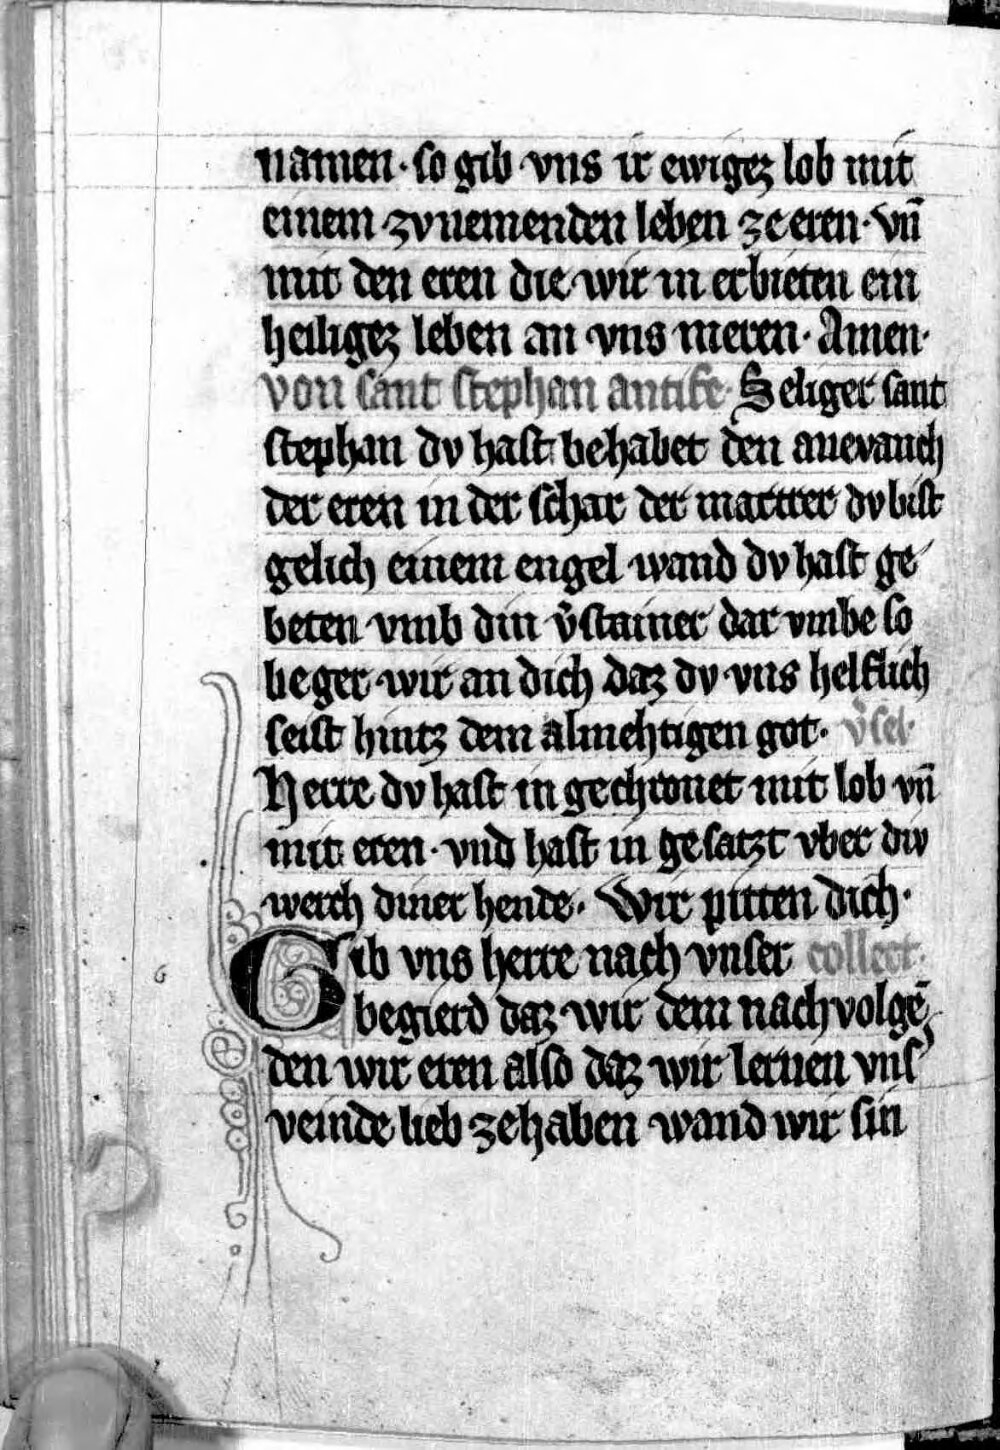 namen · so gib vns ir ewigez lob mit
einem zvnemenden leben ze eren · vn̄
mit den eren die wir in erbieten ein
heiligez leben an vns meren · Amen ·
von sant stephan antife · Seliger sant
stephan dv hast behabet den anevanch
der eren in der schar der martrer dv bist
gelich einem engel wand dv hast ge
beten vmb din v̓stainer dar vmbe so
beger wir an dich daz dv vns helflich
seist hintz dem almehtigen got · v̓sel ·
Herre dv hast in gechronet mit lob vn̄
mit eren · vnd hast in gesatzt vber div
werch diner hende · Wir pitten dich ·
Gib vns herre nach vnser collect ·
begierd daz wir dem nachvolgē
den wir eren also daz wir lernen vns̓
veinde lieb zehaben wand wir sin